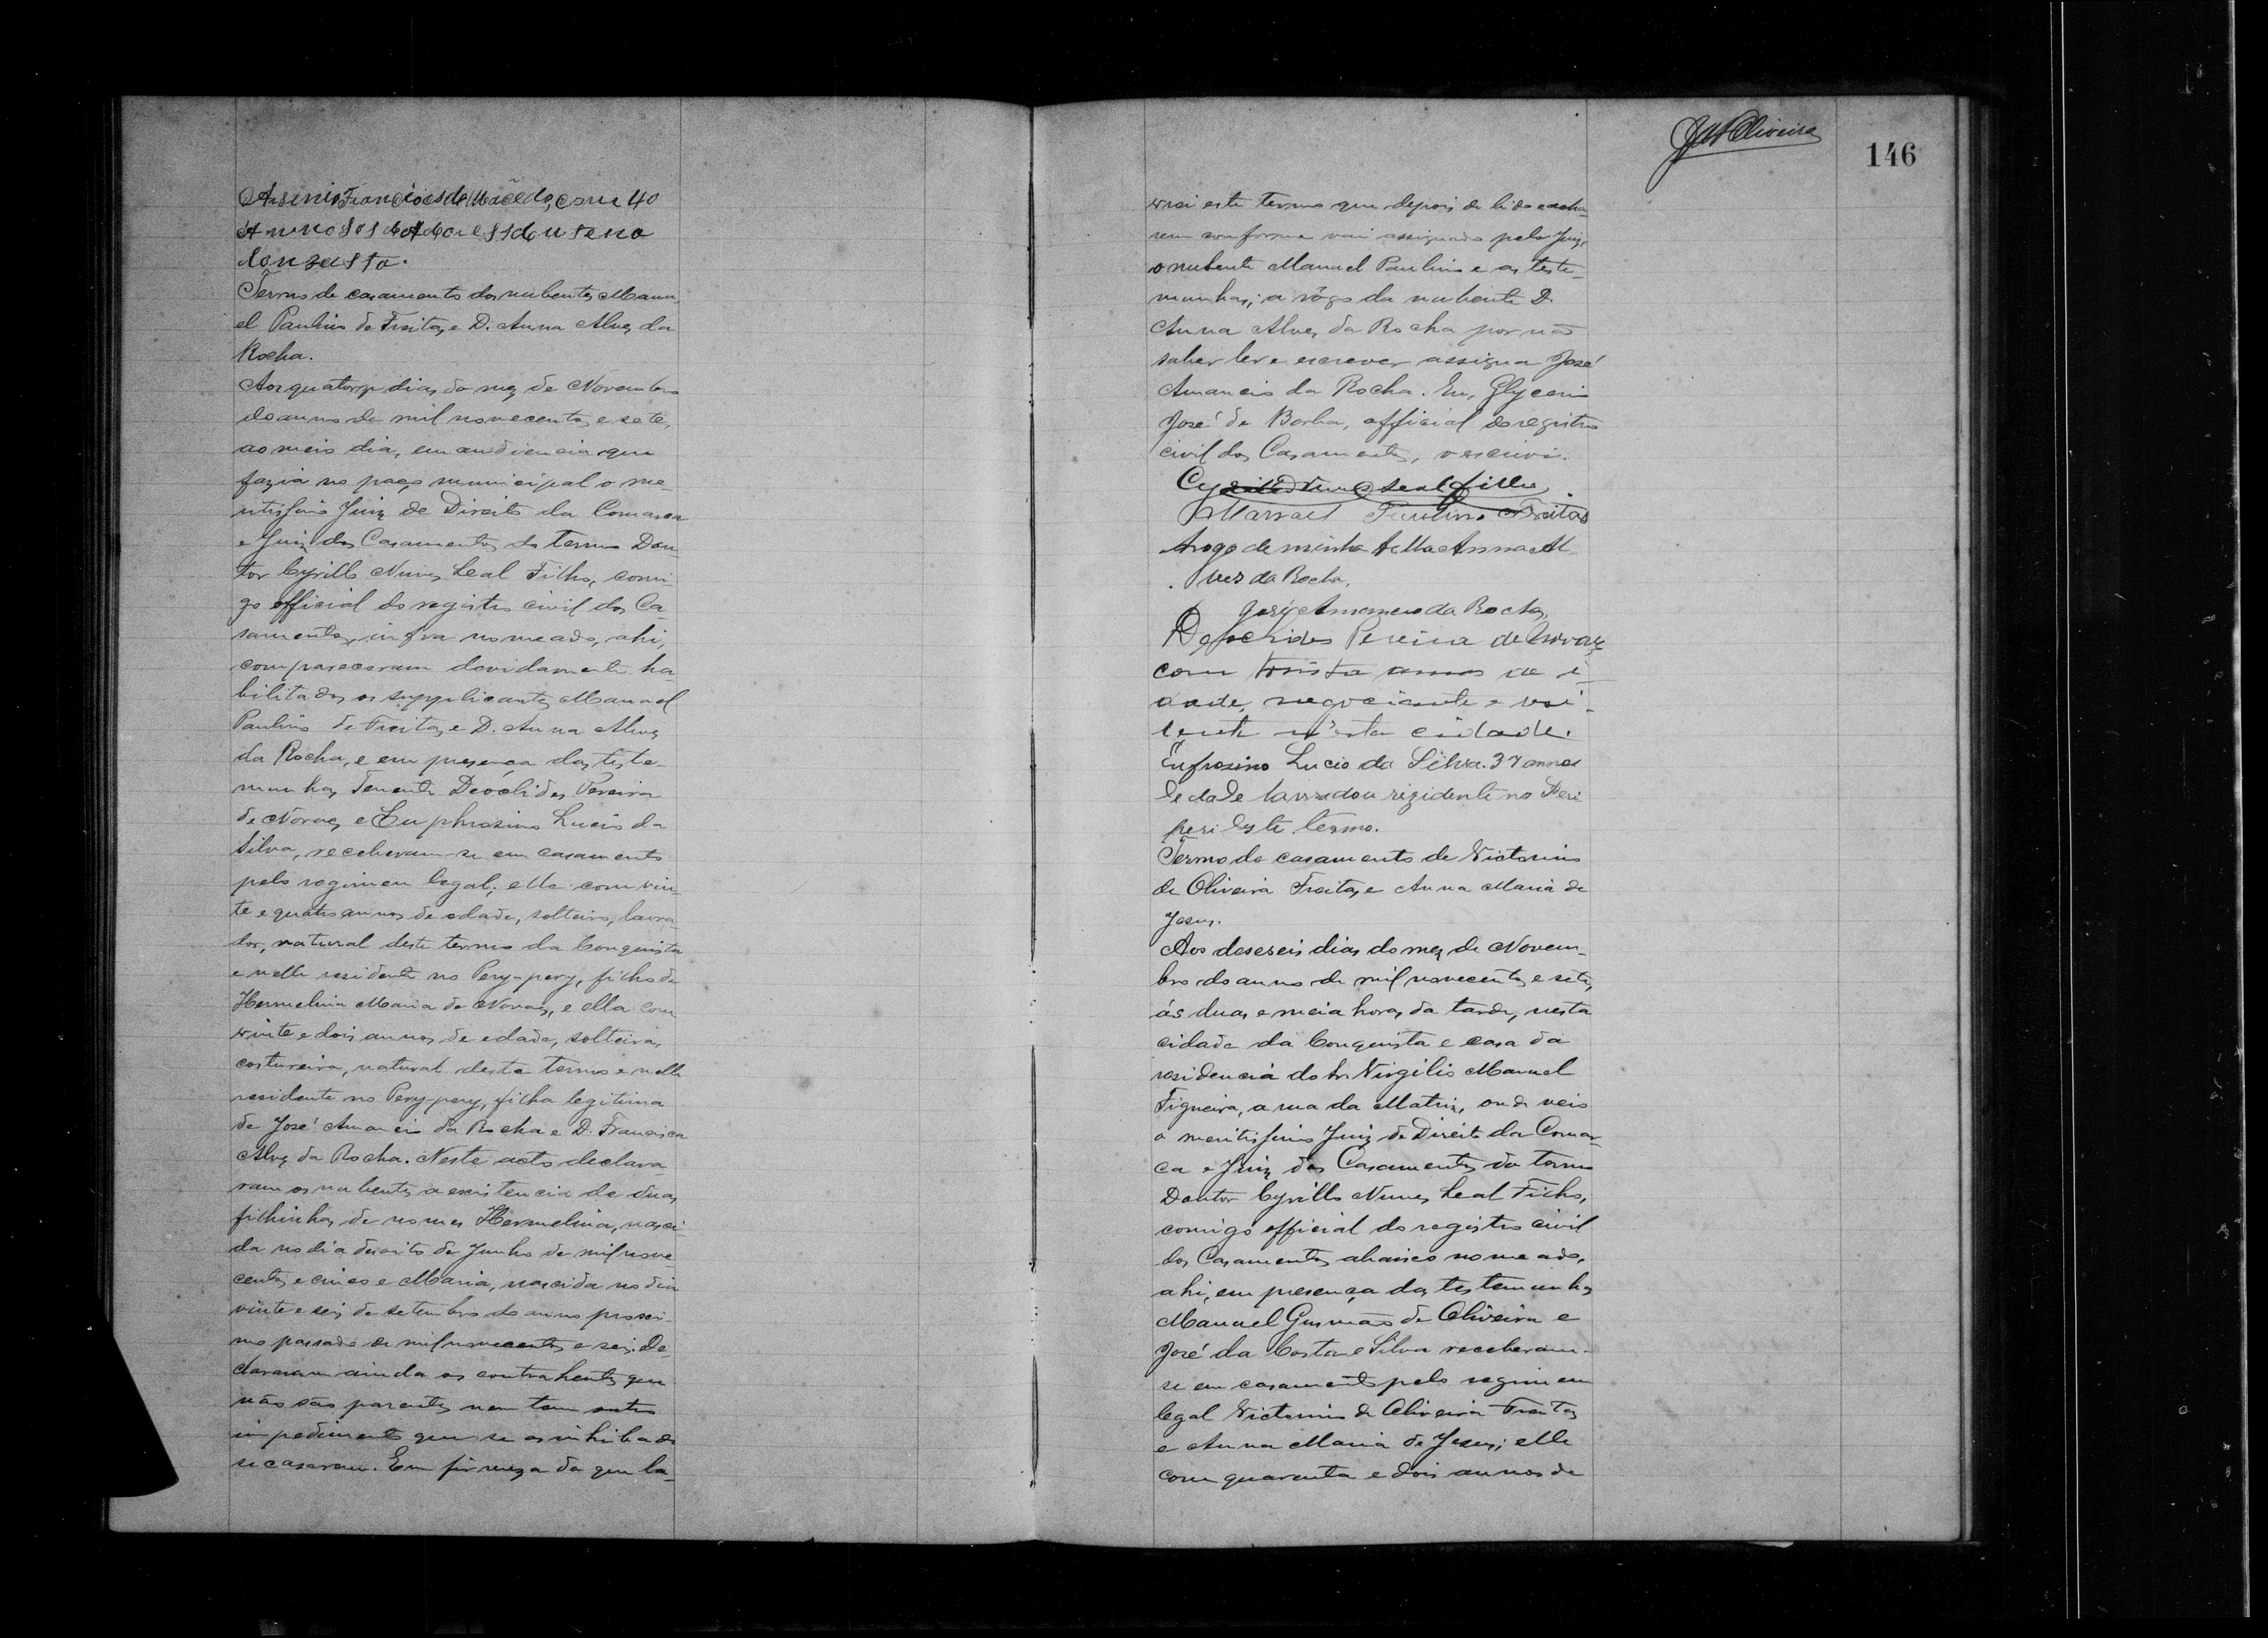 Arsenio Francisco de Macêdo, com 40
Termo de casamento dos nubentes Manu
el Paulino de Freitas e D. Anna Alves da
Rocha.
Aos quatorze dias do mez de Novembro
do anno de mil novecentos e sete,
ao meio dia, em audiencia que
fazia no paço municipal o me-
ritissimo Juiz de Direito da Comarca
e Juiz dos Casamentos do termo Dou-
tor Cyrillo Nunes Leal Filho, comi-
go official do registro civil dos Ca-
samentos, infra nomeado, ahi,
compareceram devidamente ha-
bilitados os supplicantes Manuel
Paulino de Freitas e D. Anna Alves
da Rocha, e em presença das teste-
munhas Tenente Deóclides Pereira
de Novaes e Euphrosino Lucio da
Silva, receberam-se em casamento
pelo regimen legal; elle com vin-
te e quatro annos de edade, solteiro, lavra
dor, natural deste termo da Conquista
e nelle residente no Pery-pery, filho de
Hermelina Maria de Novaes, e ella com
vinte e dois annos de edade, solteira,
costureira, natural deste termo e nelle
residente no Pery-pery, filha legitima
de José Amancio da Rocha e D. Francisca
Alves da Rocha. Neste acto declara-
ram os nubentes a existencia de duas
filhinhas de nomes Hermelina, nasci
da no dia desoito de Junho de mil nove
centos e cinco e Maria, nascida no dia
vinte e seis de setembro do anno proxi-
mo passado de mil novecentos e seis. De-
clararam ainda os contrahentes que
não são parentes nem tem outro
impedimento que se os inhiba de
se casarem. Em firmeza do que la-
J Oliveira
146
vrei este termo que depois de lido e acha-
rem conforme vai assignado pelo Juiz,
o nubente Manuel Paulino e as teste-
munhas; a rôgo da nubente D.
Anna Alves da Rocha por não
saber ler e escrever assigna José
Amancio da Rocha. Eu, Glycerio
José de Borba, official do registro
civil dos Casamentos, o escrevi.
Cyrillo Nunes Leal Filho.
Manoel Paulino Freitas
Arogo de minha filha Anna Al
ves da Rocha,
José Amancio da Rocha,
Deoclides Pereira de Novaes
com trinta annos de i-
dade, negociante e resi-
dente n'esta cidade.
Eufrosino Lucio da Silva. 37 annos
de dade lavrador rezidente no Peri
peri deste termo.
Termo de casamento de Victorino
de Oliveira Freitas e Anna Maria de
Jesus.
Aos deseseis dias do mez de Novem-
bro do anno de mil novecentos e sete,
ás duas e meia horas da tarde, nesta
cidade da Conquista e casa da
residencia do Sr. Virgilio Manuel
Figueira, a rua da Matriz, onde veio
o meritissimo Juiz de Direito da Comar-
ca e Juiz dos Casamentos do termo
Doutor Cyrillo Nunes Leal Filho,
comigo official do registro civil
dos Casamentos abaixo nomeado,
ahi, em presença das testemunhas
Manuel Gusmão de Oliveira e
José da Costa e Silva receberam-
se em casamento pelo regimen
legal Victorino de Oliveira Freitas
e Anna Maria de Jesus; elle
com quarenta e dois annos de